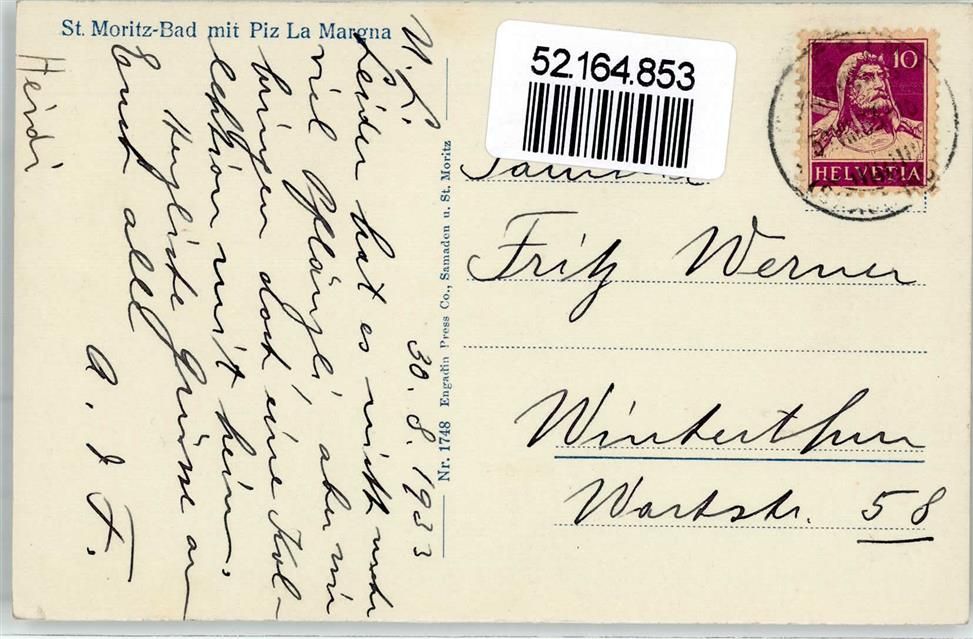 St. Moritz-Bad mit Piz La Margna
52.164.853
10
HELVETIA
Nr. 1748 Engadin Press Co., Samaden u. St. Moritz
30.8.1933
Leider hat es nicht mehr
viel Pflänzli, aber wir
bringen doch eine Kol-
lektion mit heim.
Herzliche Grüsse an
Euch alle
A. J F.
Heidi
Familie
Fritz Werner
Winterthur
Wartstr. 58